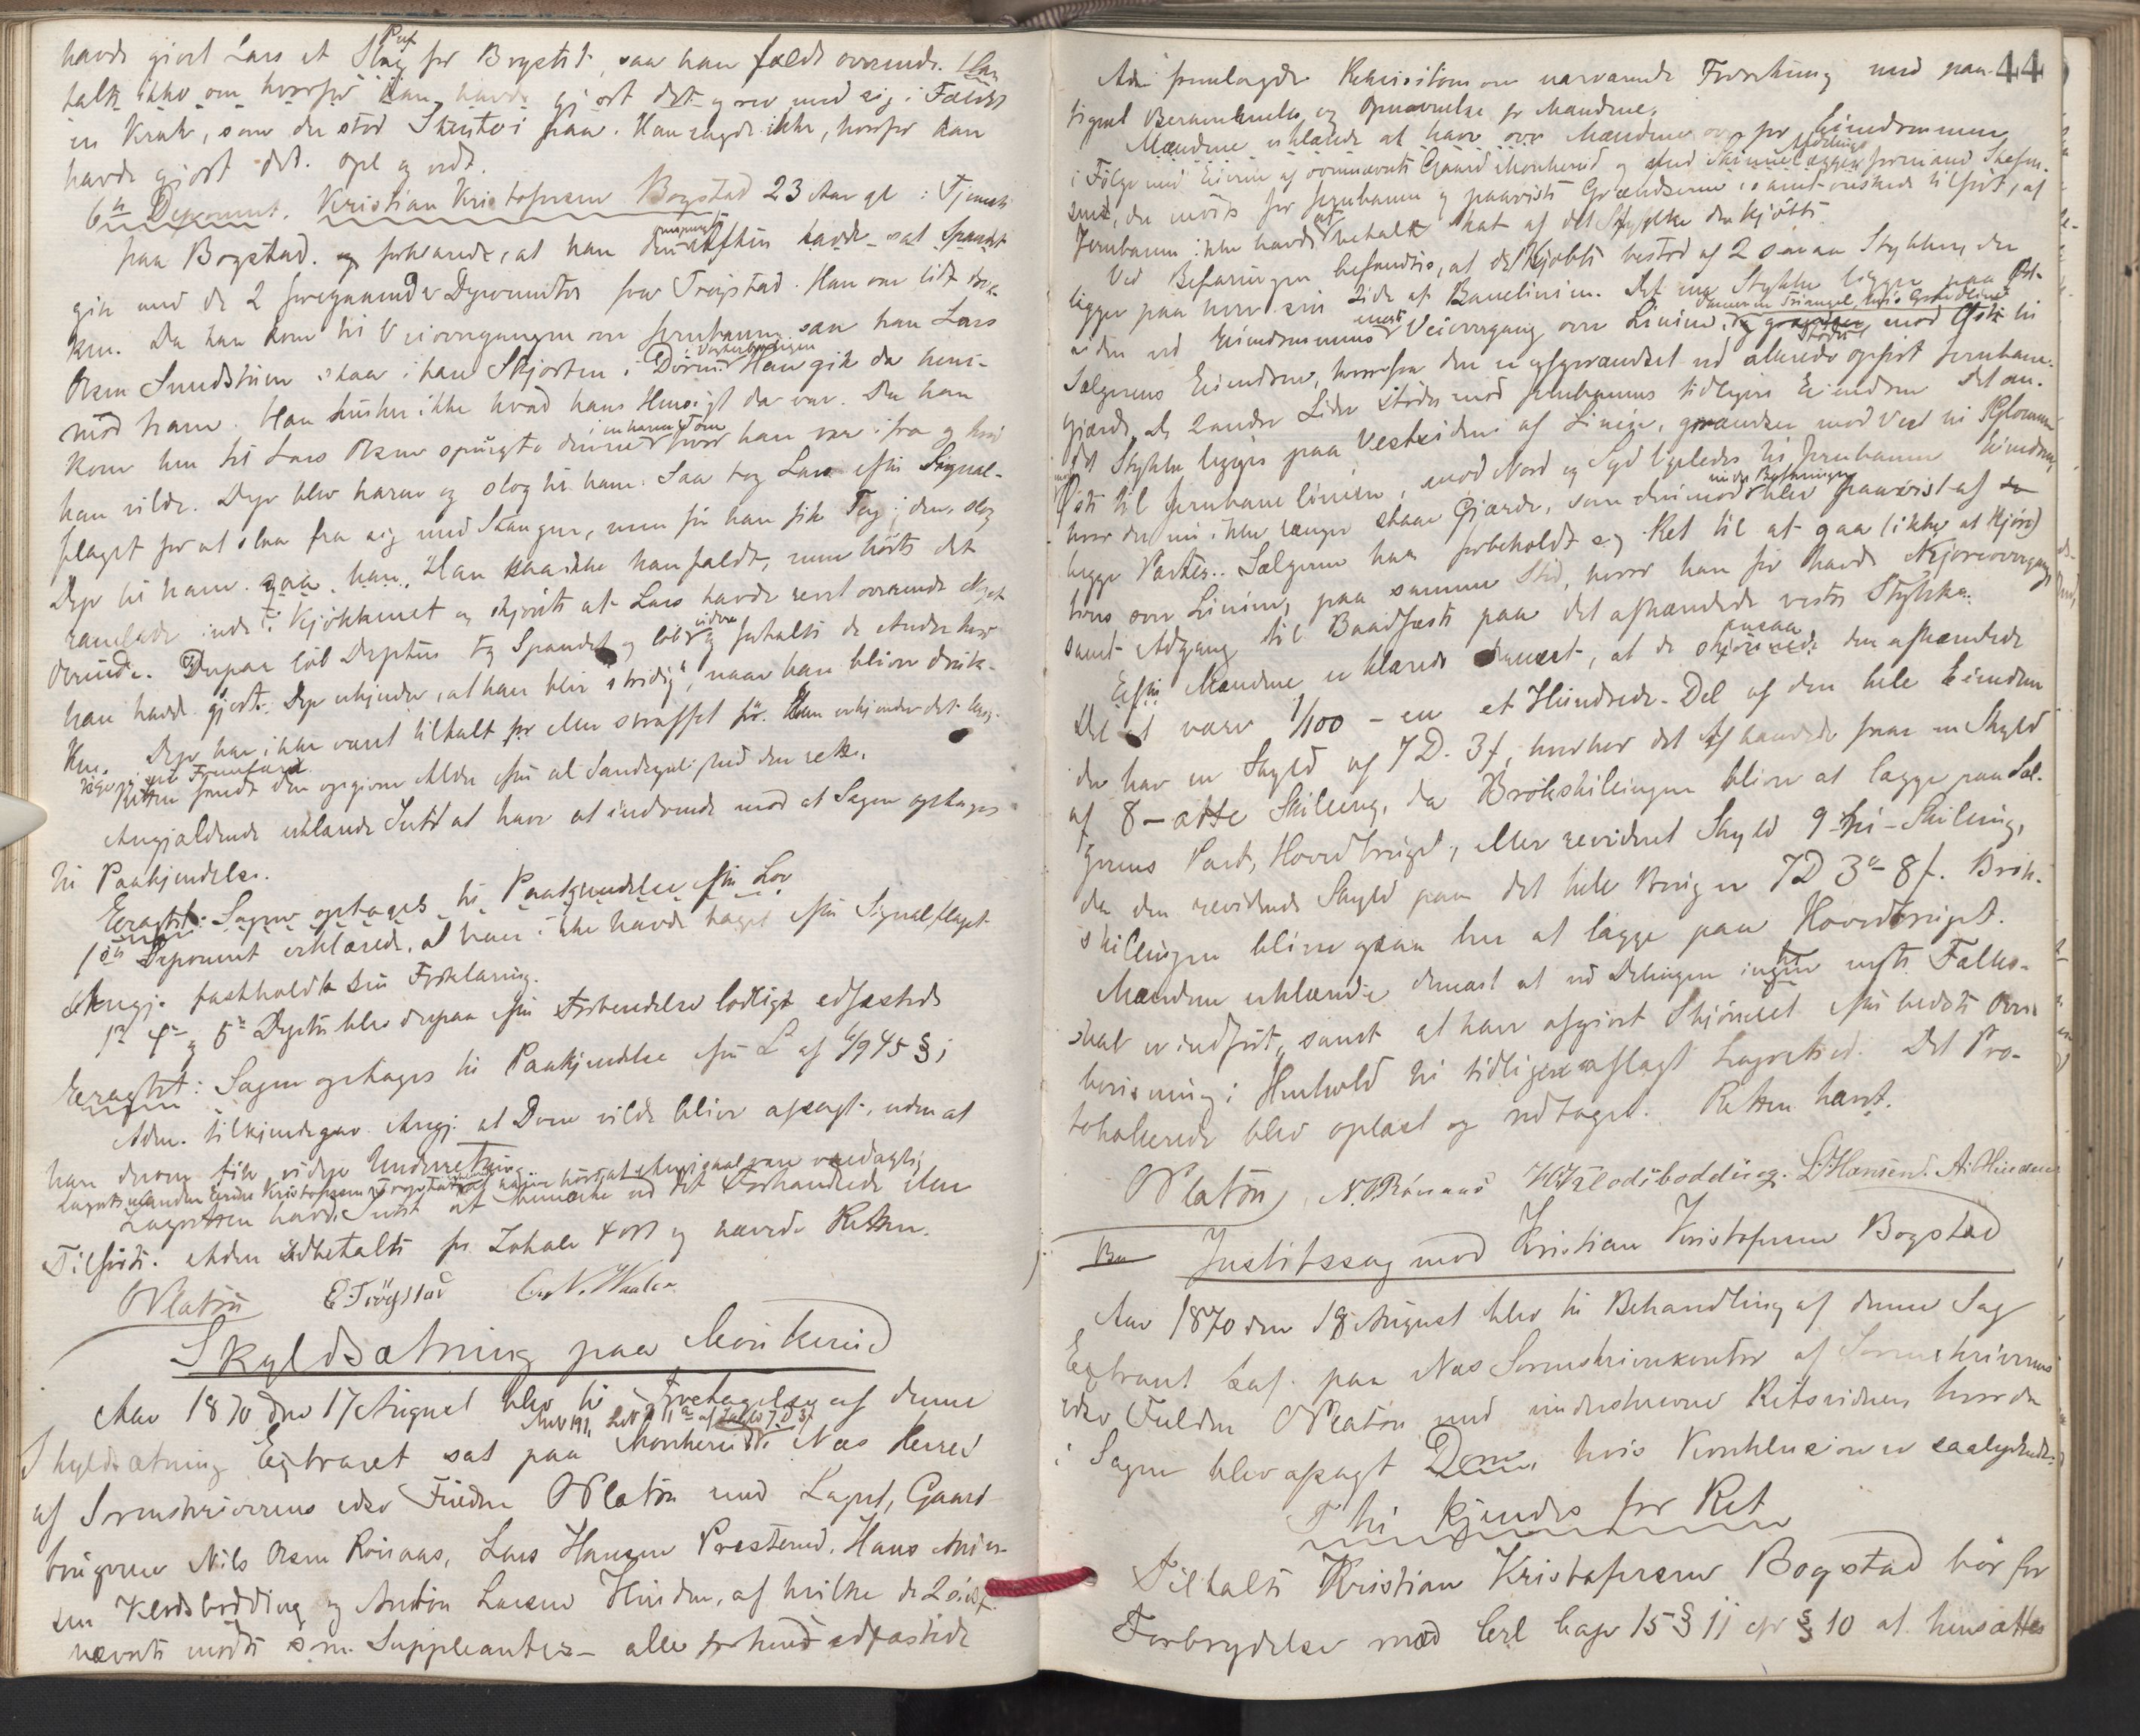 havde gjort Lars et Puf for Brystet, saa han faldt overende. Han
talte ikke om hvorfor han havde gjort det og rev med sig i Faldet
en Krak, som der stod paa. Han sagde ikke, hvorfor han
havde gjort det. Opl og vedt.
6te Deponent. Kristian Kristofersen Bogstad 23 Aar gl: Tjeneste
paa Bogstad. forklarede, at han Aften havde sat Spandet
gik med de 2 foregaaende Deponenter fra Trøgstad. Han var lidt druk-
ken. Da han kom til Veiovergangen over Jernbanen saa han Lars
Olsen staa i bare Skjorten i Døren. Han gik da hen i-
mod ham. Han husker ikke hvad hans Hensigt da var. Da han
kom hen til Lars Olsen spurgte denne hvor han var ifra og hvor
han vilde. Dep. blev harm og slog til ham. Saa tog Lars efter Signal-
flaget for at slaa fra sig med Stangen, men før han fik Tag i den, slog
Dep til ham. Han saa ikke han faldt, men hørte det
ramlede inde i Kjøkkenet og skjønte at Lars havde revet overende Noget
derinde. Derpaa løb Deptus tog Spandet og løb og fortalte de Andre hvad
han havde gjort. Dep erkjender, at han blir "stridig", naar han bliver druk-
ken. Dep har ikke været tiltalt for eller straffet før. Han erkjender det
Retten fandt den opgivne Alder efter al Sandsynlighed den rette.
Angjældende erklærede Intet at have at indvende mod at Sagen optages
til Paakjendelse.
Eragtet: Sagen optages til Paakjendelse efter Lov
1ste Deponent erklærede, at han ikke havde taget efter Signalflaget
Angj. fastholdt sin Forklaring.
1ste 4de og 5te Deptus blev derpaa efter Forberedelse lovligt edfæstede
Eragtet: Sagen optages til Paakjendelse efter L. af 6/9 45 §1
Adm. tilkjendegav Angj. at Dom vilde blive afsagt, uden at
han derom fik videre Underretning
Lagretten havde Intet at bemærke ved det Forhandlede eller
Tilførte. Adm udbetalte for Lokale 4 ort og hævede Retten.
OPlatou E. Trøgstad
Skyldsætning paa Monkerud
Aar 1870 den 17 August blev til Foretagelse af denne
Skyldsætning Extraret sat paa Monkerud i Næs Herred
af Sorenskriverens edsv Fuldm OPlatou med Lagret, Gaard-
brugerne Nils Olsen Rønaas, Lars Hansen Presterud, Hans Ander-
sen Klodsbødding og Anton Larsen Hinden, af hvilke de 2 sidst-
nævnte mødte som Suppleanter – alle forhend edfæstede
44
Adm fremlagde Rekvisitionen om nærværende Forretning med paa-
tegnet Berammelse og Opnævnelse for Mændene.
Mændene erklærede at have over Eiendommen
i Følge med Eieren af ovennævnte Gaard Monkerud og med
der mødte for Jernbanen og paaviste Grændserne samt ønskede tilført, at
Jernbanen ikke havde betalt Skat af det Stykke den kjøbte.
Ved Befaringen befandtes, at det Kjøbte bestod af 2 smaa Stykker, der
ligger paa hver sin Side af Banelinien. Det ene Stykke ligger paa Øst-
siden ved Eiendommens Veiovergang over Linien, mod Øst til
Sælgerens Eiendom, hvorfra den er afgrændset ved allerede opført Jernbane-
gjærde. De 2 andre Sider støder mod Jernbanens tidligere Eiendom. Det an-
det Stykke ligger paa Vestsiden af Linien, grændser mod Vest til Glommen
Øst til Jernbanelinien, mod Nord og Syd ligeledes til Jernbanens Eiendom,
hvor der nu ikke længer staar Gjærde, som derimod blev paavist af
begge Parter. Sælgeren har forbeholdt sig Ret til at gaa (ikke at kjøre)
tvers over Linien, paa samme Sted, hvor han før havde Kjøreovergang
samt Adgang til Baadfæste paa det afhændede vestre Stykke.
Mændene erklærede dernæst, at de ansaa den afhændede
Del at være 1/100 – en et Hundrede-Del af den hele Eiendom
der har en Skyld af 7D. 3ƒ, hvorhos det Afhændede faar en Skyld
af 8 – otte Skilling, da Brøkskillingen bliver at lægge paa Sæl-
gerens Part, Hovedbruget, eller revideret Skyld 9 – ni – Skilling,
da den reviderede Skyld paa det hele Brug er 7D 3ort 8ƒ. Brøk-
skillingen bliver ogsaa her at lægge paa Hovedbruget.
Mændene erklærede dernæst at ved Delingen intet nyt Fælles-
skab er indført, samt at have afgivet Skjønnet efter bedste Over-
bevisning i Henhold til tidligere aflagt Lagretsed. Det Pro-
tokollerede blev oplæst og vedtaget. Retten hævet.
OPlatou N.O.Rønaas H.A.Klodsbødding. L.Hansen. A. Hinden
Justitssag mod Kristian Kristofersen Bogstad
Aar 1870 den 18 August blev til Behandling af denne Sag
Extraret sat paa Næs Sorenskriverkontor af Sorenskriverens
edsv Fuldm OPlatou med underskrevne Retsvidner, hvorda
i Sagen blev afsagt Dom, hvis Konklusion er saalydende:
Thi kjendes for Ret
Tiltalte Kristian Kristofersen Bogstad bør for
Forbrydelse mod Crl Cap 15 § 11 cfr § 10 at hensættes